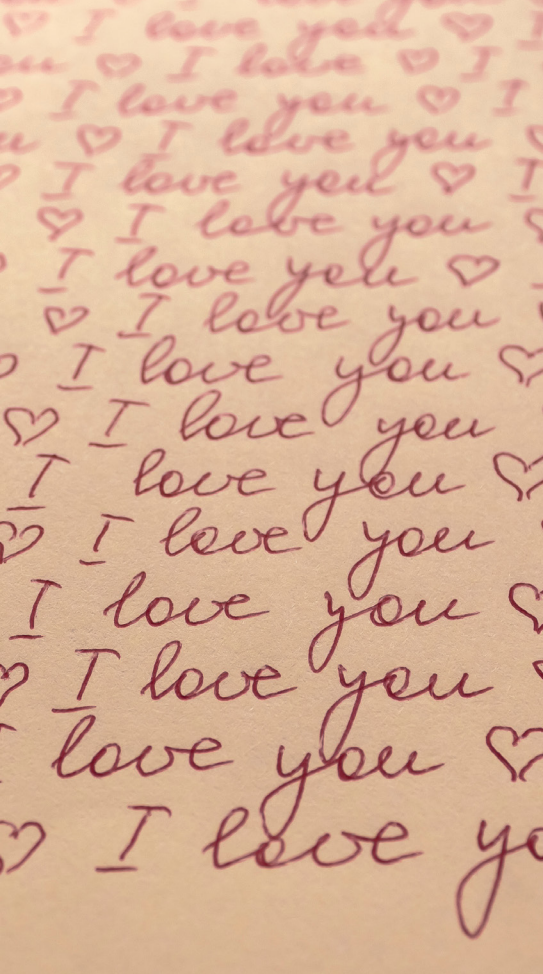 I love you ♡
♡ I love ♡ I
I love you ♡ I
♡ I love you
I love you ♡ I
♡ I love you ♡
I love you ♡
♡ I love you
♡ I love you ♡
♡ I love you
I love you ♡
♡ I love you
I love you ♡
♡ I love you
love you ♡
♡ I love yo